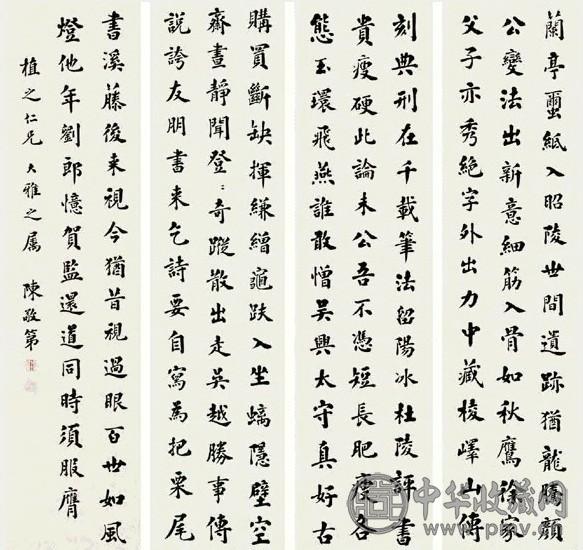 蘭亭蠒紙入昭陵世間遺跡猶龍騰顏
公變法出新意細筋入骨如秋鷹徐家
父子亦秀絕字外出力中藏棱嶧山傳
刻典刑在千載筆法留陽冰杜陵評書
貴瘦硬此論未公吾不憑短長肥瘦各
態玉環飛燕誰敢憎吳興太守真好古
購買斷缺揮縑繒龜趺入坐螭隱壁空
齋晝靜聞登〻奇蹤散出走吳越勝事傳
說誇友朋書來乞詩要自寫為把栗尾
書溪藤後來視今猶昔視過眼百世如風
燈他年劉郎憶賀監還道同時須服膺
植之仁兄大雅之屬 陳敬第
中华收藏网
www.pmv.cn